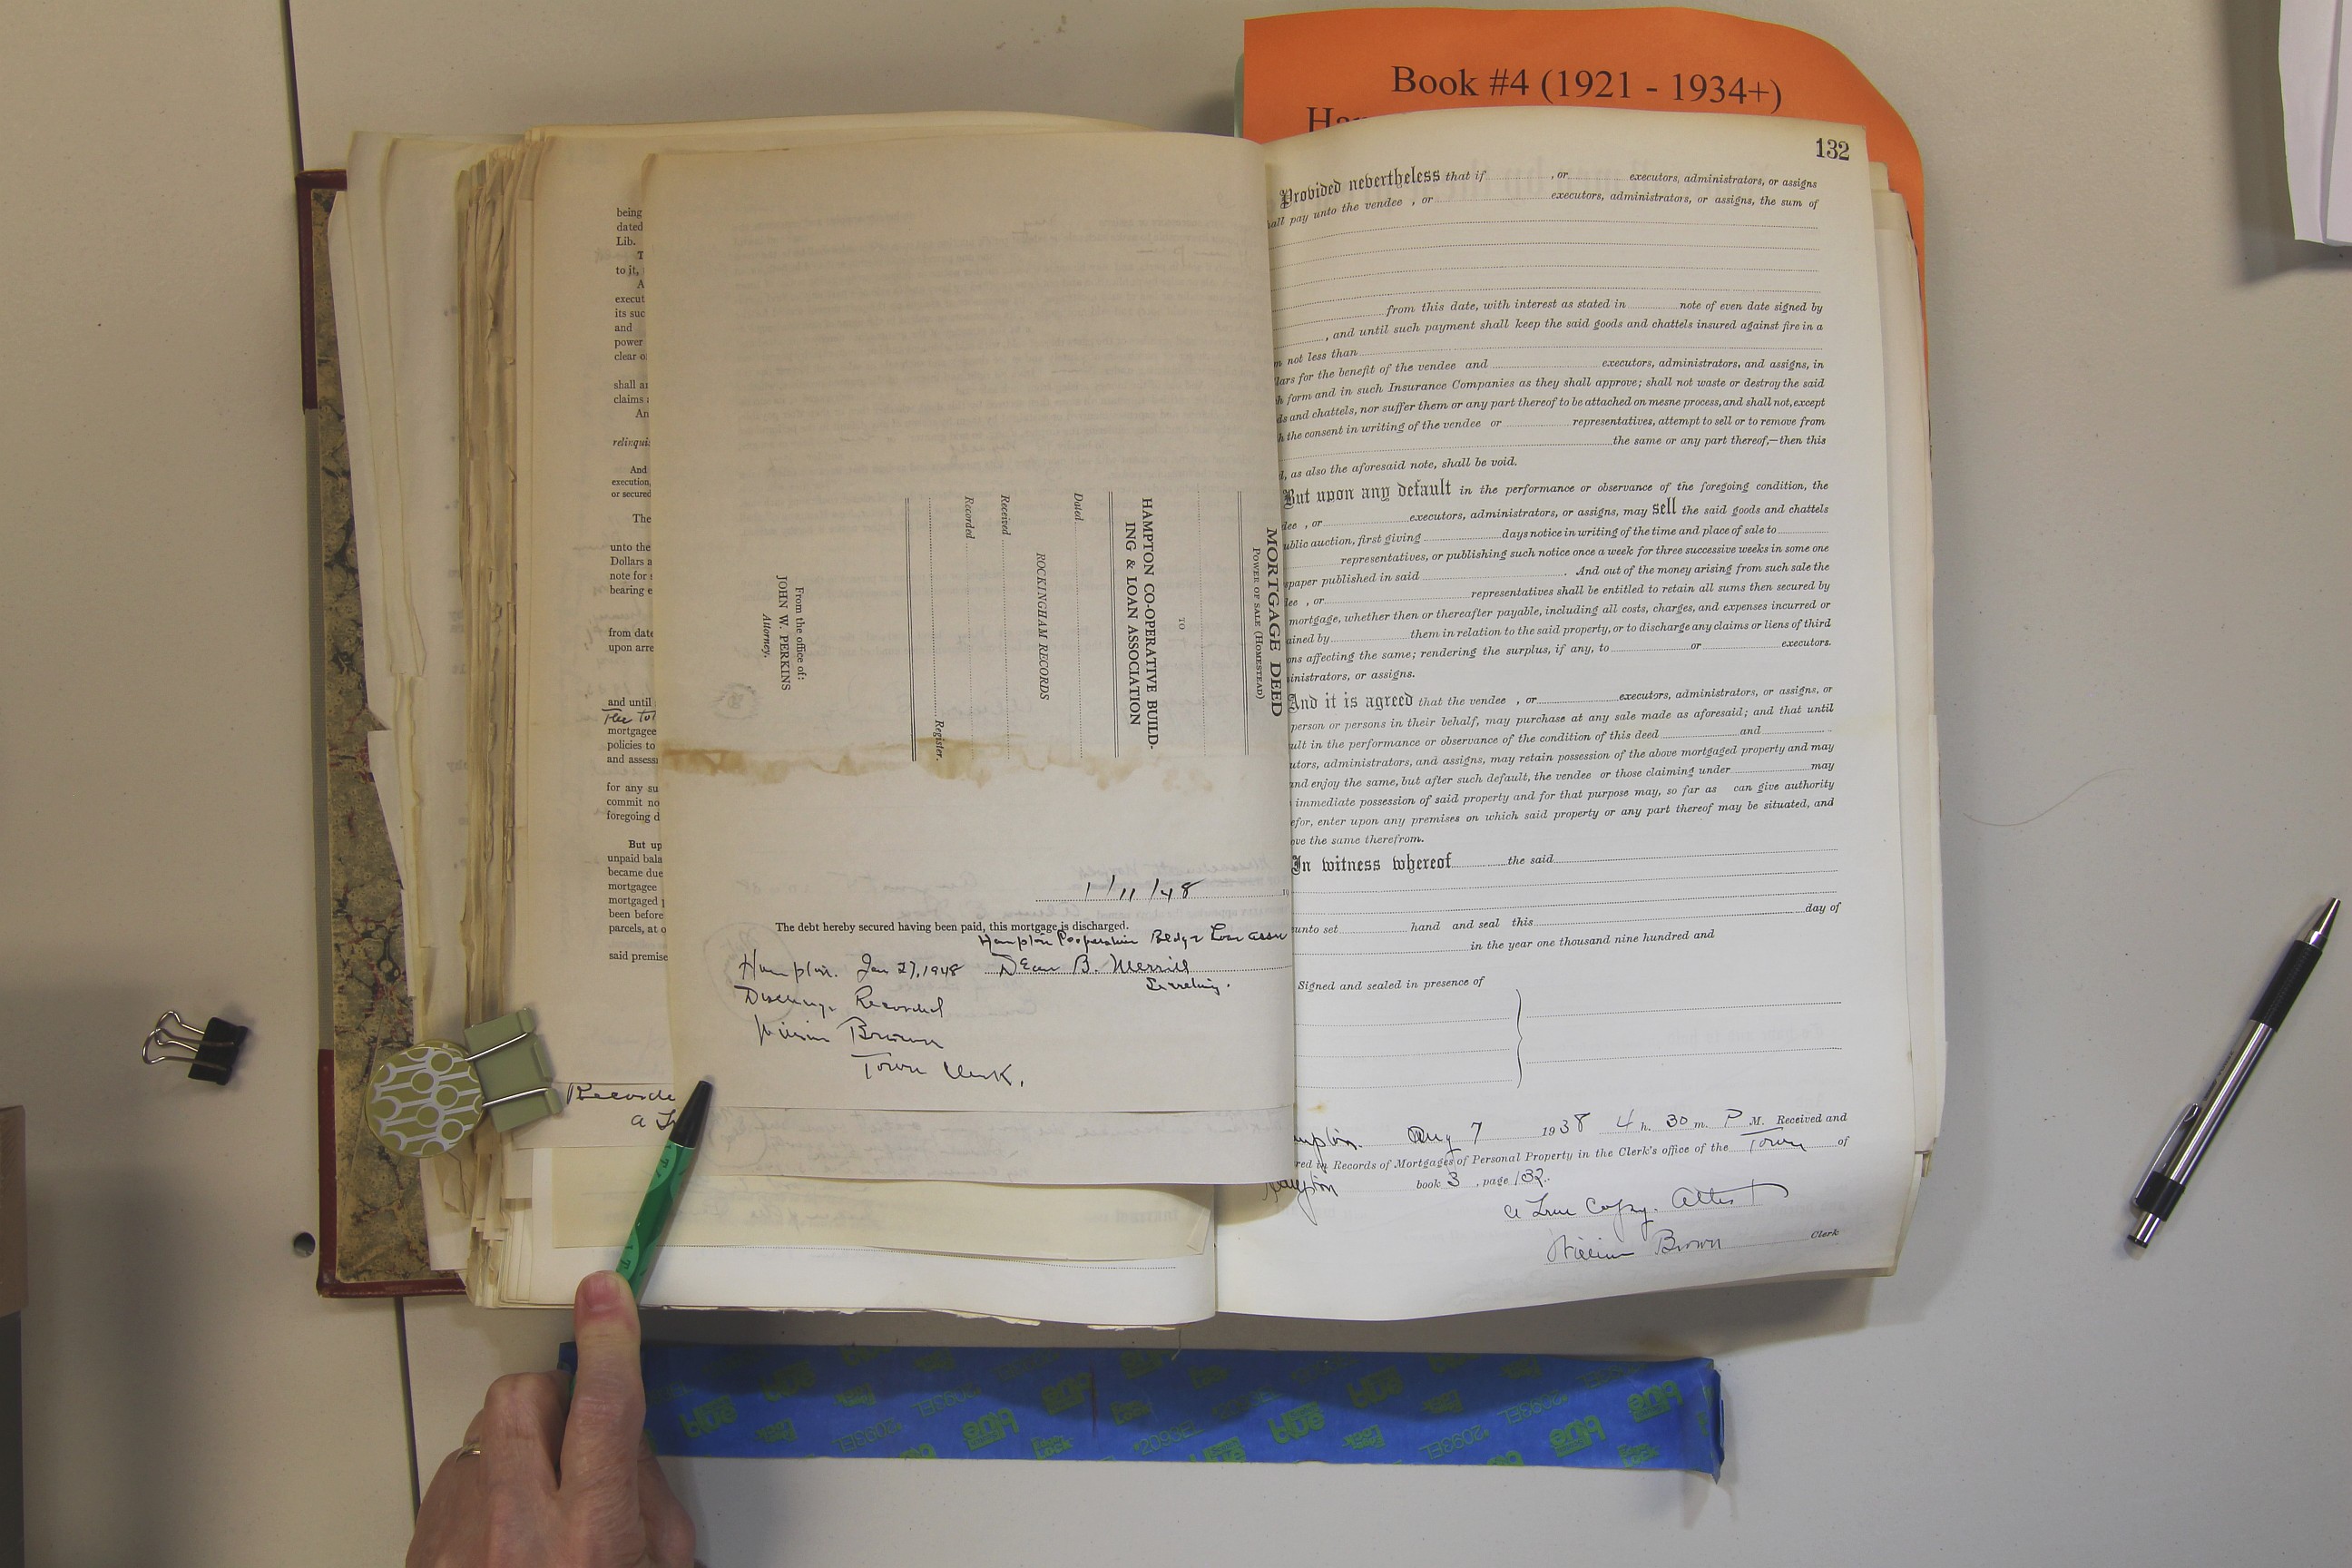 Book #4 (1921 - 1934+)
132
being
dated
Lib.
T
to it,
A
execut
its suc
and
power
clear o
shall a
claims
An
relinquis
And
execution,
or secured
The
unto the
Dollars a
note for
bearing e
from date
upon arre
and until
The tot
mortgagee
policies to
and assess
for any su
commit no
foregoing d
But up
unpaid bala
became due
mortgagee
mortgaged p
been before
parcels, at o
said premise
Recorde
a Tr
MORTGAGE DEED
POWER OF SALE (HOMESTEAD)
TO
HAMPTON CO-OPERATIVE BUILD-
ING & LOAN ASSOCIATION
Dated
ROCKINGHAM RECORDS
Received
Recorded
Register.
From the office of:
JOHN W. PERKINS
Attorney.
1/11/48 19
The debt hereby secured having been paid, this mortgage is discharged.
Hampton Cooperative Bldg & Loan Assn
Hampton. Jan 27, 1948 Dean B. Merrill
Secretary.
Discharge Recorded
William Brown
Town Clerk.
Provided nevertheless that if , or executors, administrators, or assigns
hall pay unto the vendee , or executors, administrators, or assigns, the sum of
from this date, with interest as stated in note of even date signed by
, and until such payment shall keep the said goods and chattels insured against fire in a
m not less than
lars for the benefit of the vendee and executors, administrators, and assigns, in
h form and in such Insurance Companies as they shall approve; shall not waste or destroy the said
ds and chattels, nor suffer them or any part thereof to be attached on mesne process, and shall not, except
h the consent in writing of the vendee or representatives, attempt to sell or to remove from
the same or any part thereof,—then this
d, as also the aforesaid note, shall be void.
But upon any default in the performance or observance of the foregoing condition, the
dee , or executors, administrators, or assigns, may sell the said goods and chattels
ublic auction, first giving days notice in writing of the time and place of sale to
representatives, or publishing such notice once a week for three successive weeks in some one
spaper published in said . And out of the money arising from such sale the
dee , or representatives shall be entitled to retain all sums then secured by
mortgage, whether then or thereafter payable, including all costs, charges, and expenses incurred or
ained by them in relation to the said property, or to discharge any claims or liens of third
ons affecting the same; rendering the surplus, if any, to or executors.
ministrators, or assigns.
And it is agreed that the vendee , or executors, administrators, or assigns, or
person or persons in their behalf, may purchase at any sale made as aforesaid; and that until
ult in the performance or observance of the condition of this deed and
utors, administrators, and assigns, may retain possession of the above mortgaged property and may
and enjoy the same, but after such default, the vendee or those claiming under may
immediate possession of said property and for that purpose may, so far as can give authority
efor, enter upon any premises on which said property or any part thereof may be situated, and
ove the same therefrom.
In witness whereof the said
day of
unto set hand and seal this
in the year one thousand nine hundred and
Signed and sealed in presence of
mpton. Aug 7 1938 4 h. 30 m. P M. Received and
red in Records of Mortgages of Personal Property in the Clerk's office of the Town of
Hampton book 3 , page 132.
a True Copy. Attest
William Brown Clerk